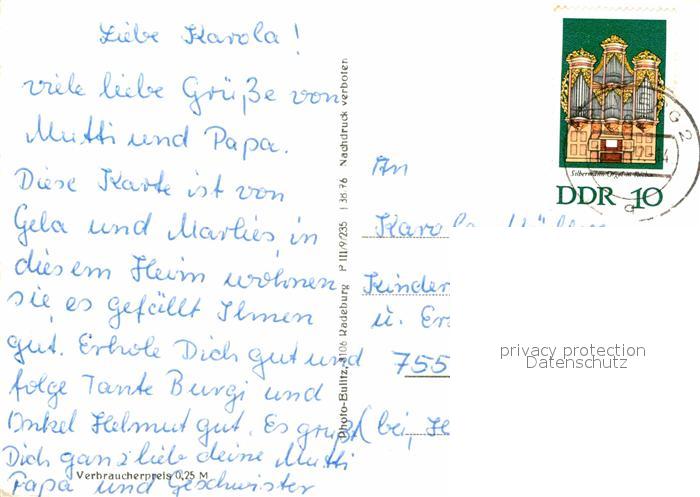 Liebe Karola!
viele liebe Grüße von
Mutti und Papa.
Diese Karte ist von
Gela und Marlies, in
diesem Heim wohnen
sie, es gefällt Ihnen
gut. Erhole Dich gut und
folge Tante Burgi und
Onkel Helmut gut. Es grüßt
Dich ganz lieb deine Mutti
Papa und Geschwister
Verbraucherpreis 0,25 M
Photo-Bulitz, 8106 Radeburg P III/9/235 I 38 76 Nachdruck verboten
An
Karola
Kinder
u. Er
755
(bei, He
Silbermann-Orgel in
DDR 10
privacy protection
Datenschutz